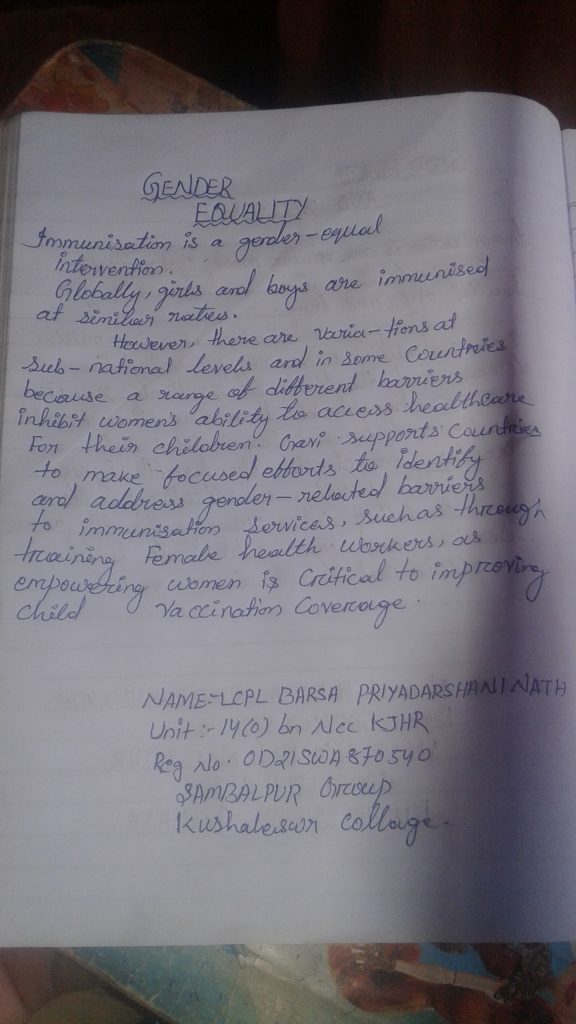 GENDER
EQUALITY
Immunisation is a gender-equal
intervention.
Globally, girls and boys are immunised
at similar rates.
However, there are varia-tions at
sub-national levels and in some Countries
because a range of different barriers
inhibit women's ability to access healthcare
For their children. Gavi supports Countries
to make focused efforts to identify
and address gender-related barriers
to immunisation services, such as through
training Female health workers, as
empowering women is Critical to improving
child vaccination Coverage.
NAME:-LCPL BARSA PRIYADARSHANI NATH
Unit:-14(O) bn Ncc KJHR
Reg No. OD21SWA870540
SAMBALPUR Group
Kushaleswr collage.